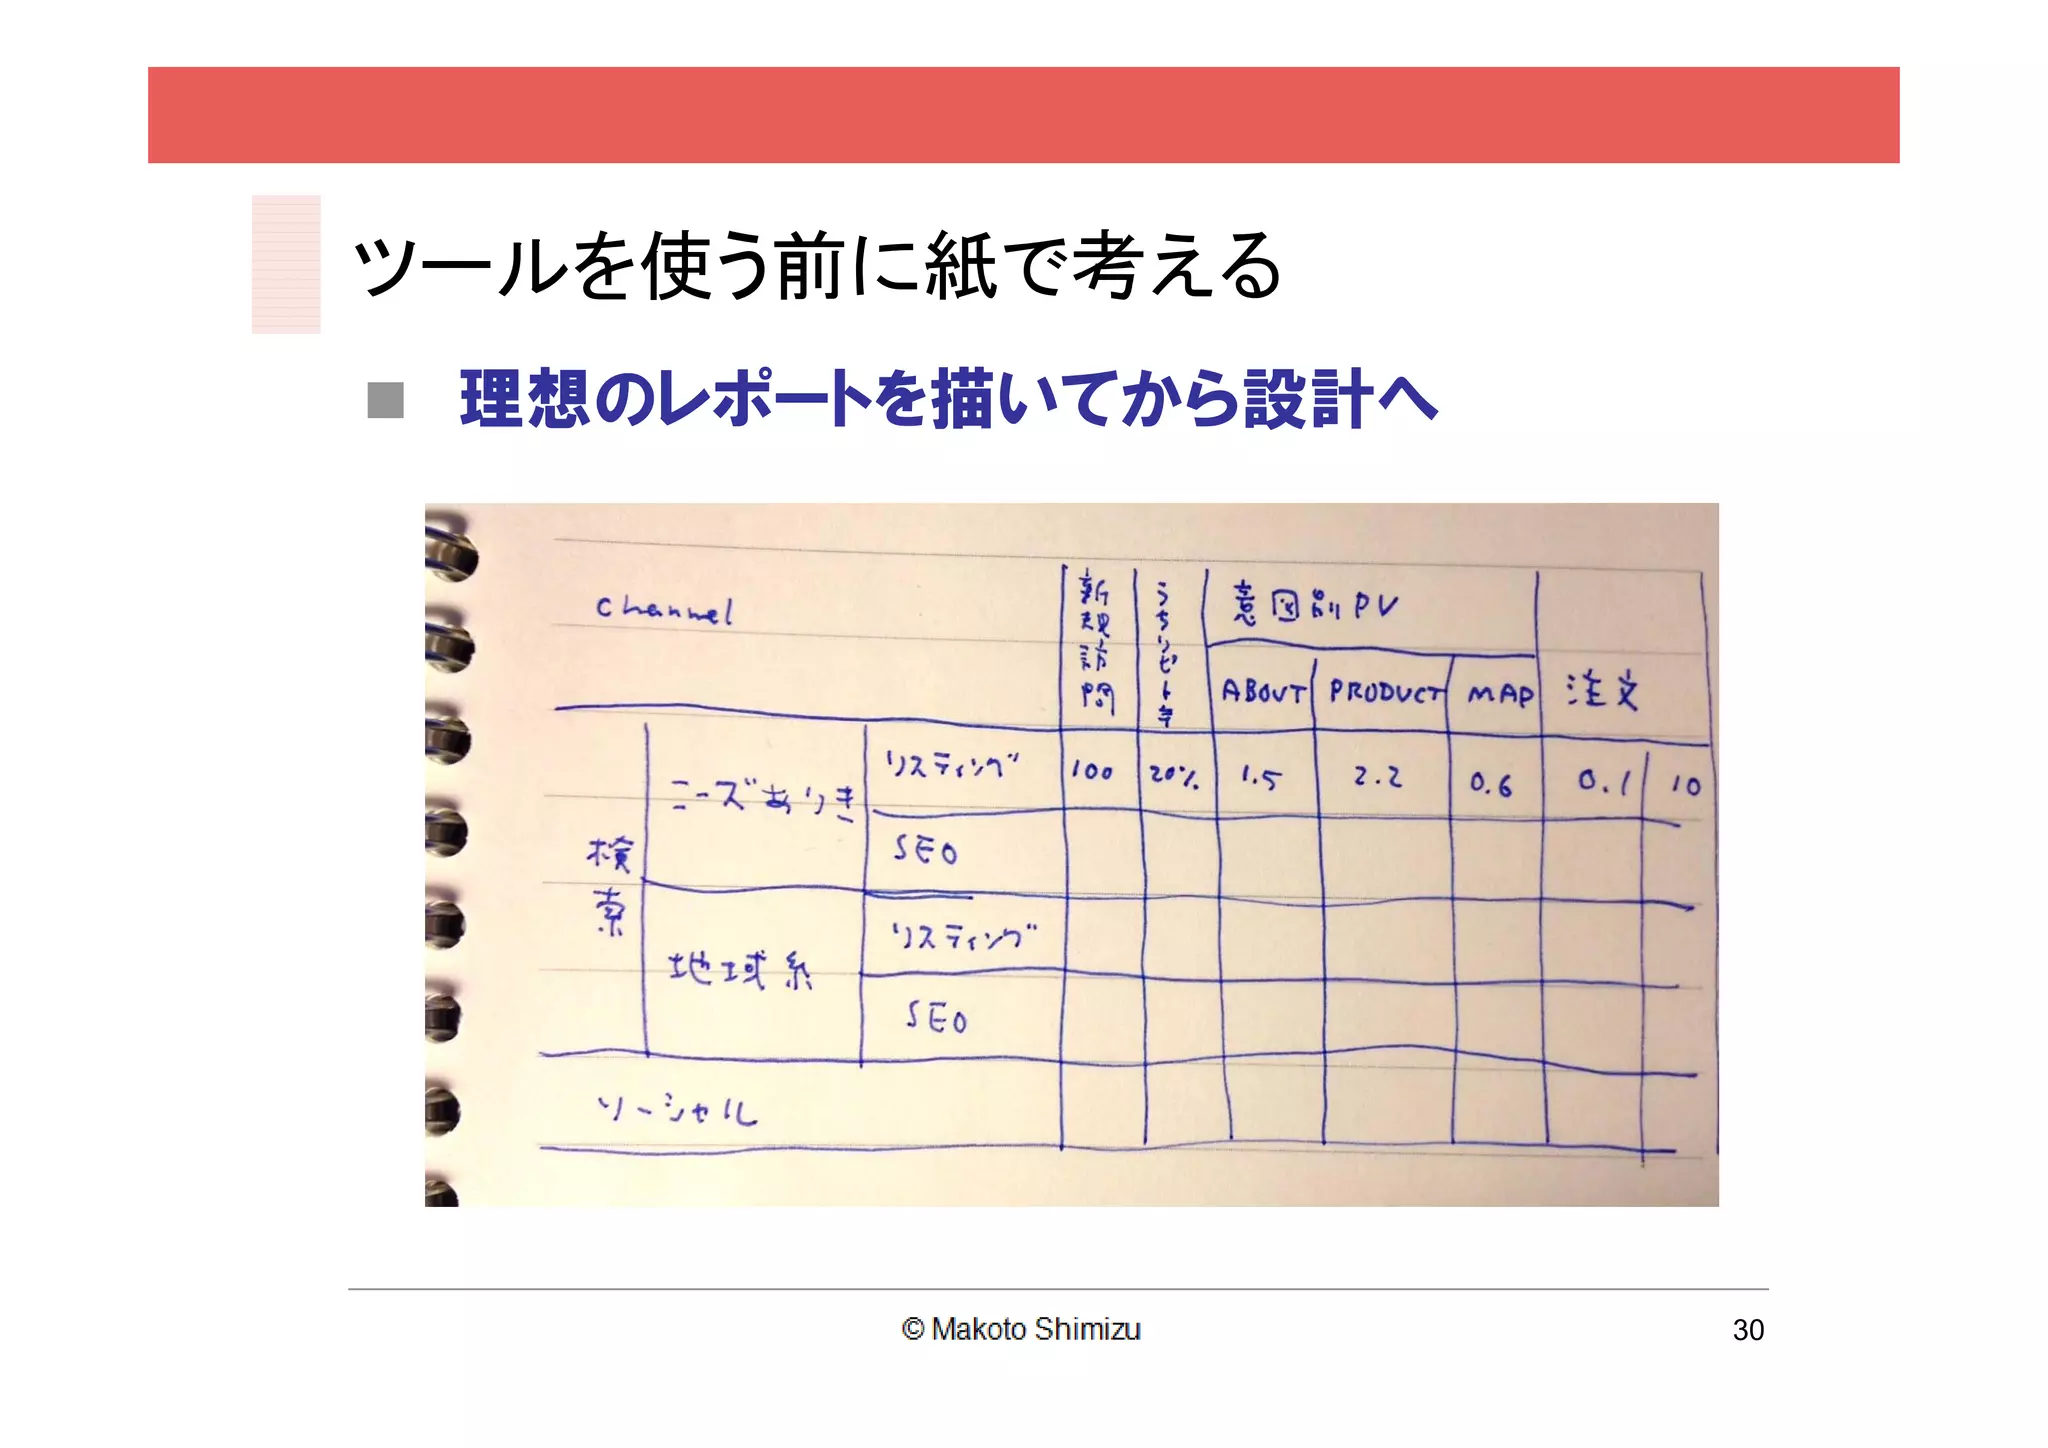 ツールを使う前に紙で考える
理想のレポートを描いてから設計へ
Channel
新規訪問
うちリピート率
意図別PV
ABOUT PRODUCT MAP
注文
検索
ニーズありき
リスティング 100 20% 1.5 2.2 0.6 0.1 10
SEO
地域系
リスティング
SEO
ソーシャル
© Makoto Shimizu
30